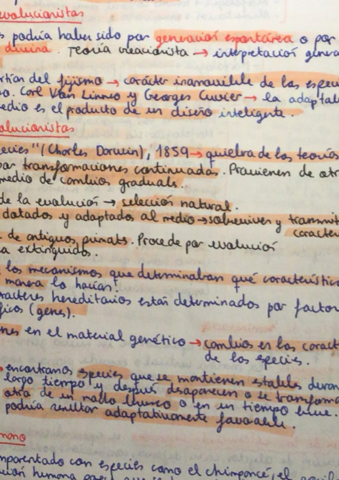 evolucionistas
s podría haber sido por generación espontánea o por
divina. Teoría creacionista → interpretación genera
rtían del fijismo → carácter inamovible de las espec
so. Carl Von Linneo y Georges Cuvier → la adaptab
edio es el producto de un diseño inteligente.
olucionistas
ecies" (Charles Darwin), 1859 → quiebra de las teorías
por transformaciones continuadas. Provienen de otr
medio de cambios graduals.
de la evolución → selección natural.
dotados y adaptados al medio → sobrevives y transmit
caracter
de antiguos primats. Procede por evolución
a extinguido.
los mecanismos que determinaban qué característic
manera lo hacían?
racteres hereditarios están determinados por factor
ficos (genes).
nes en el material genético → cambios en las caract
de las especies.
encontramos especies que se mantienen estables duran
largo tiempo y después desaparecen o se transforma
otra de un modo brusco o en un tiempo breve.
podría resultar adaptativamente favorable.
mano
mparentado con especies como el chimpancé, el
ución humana